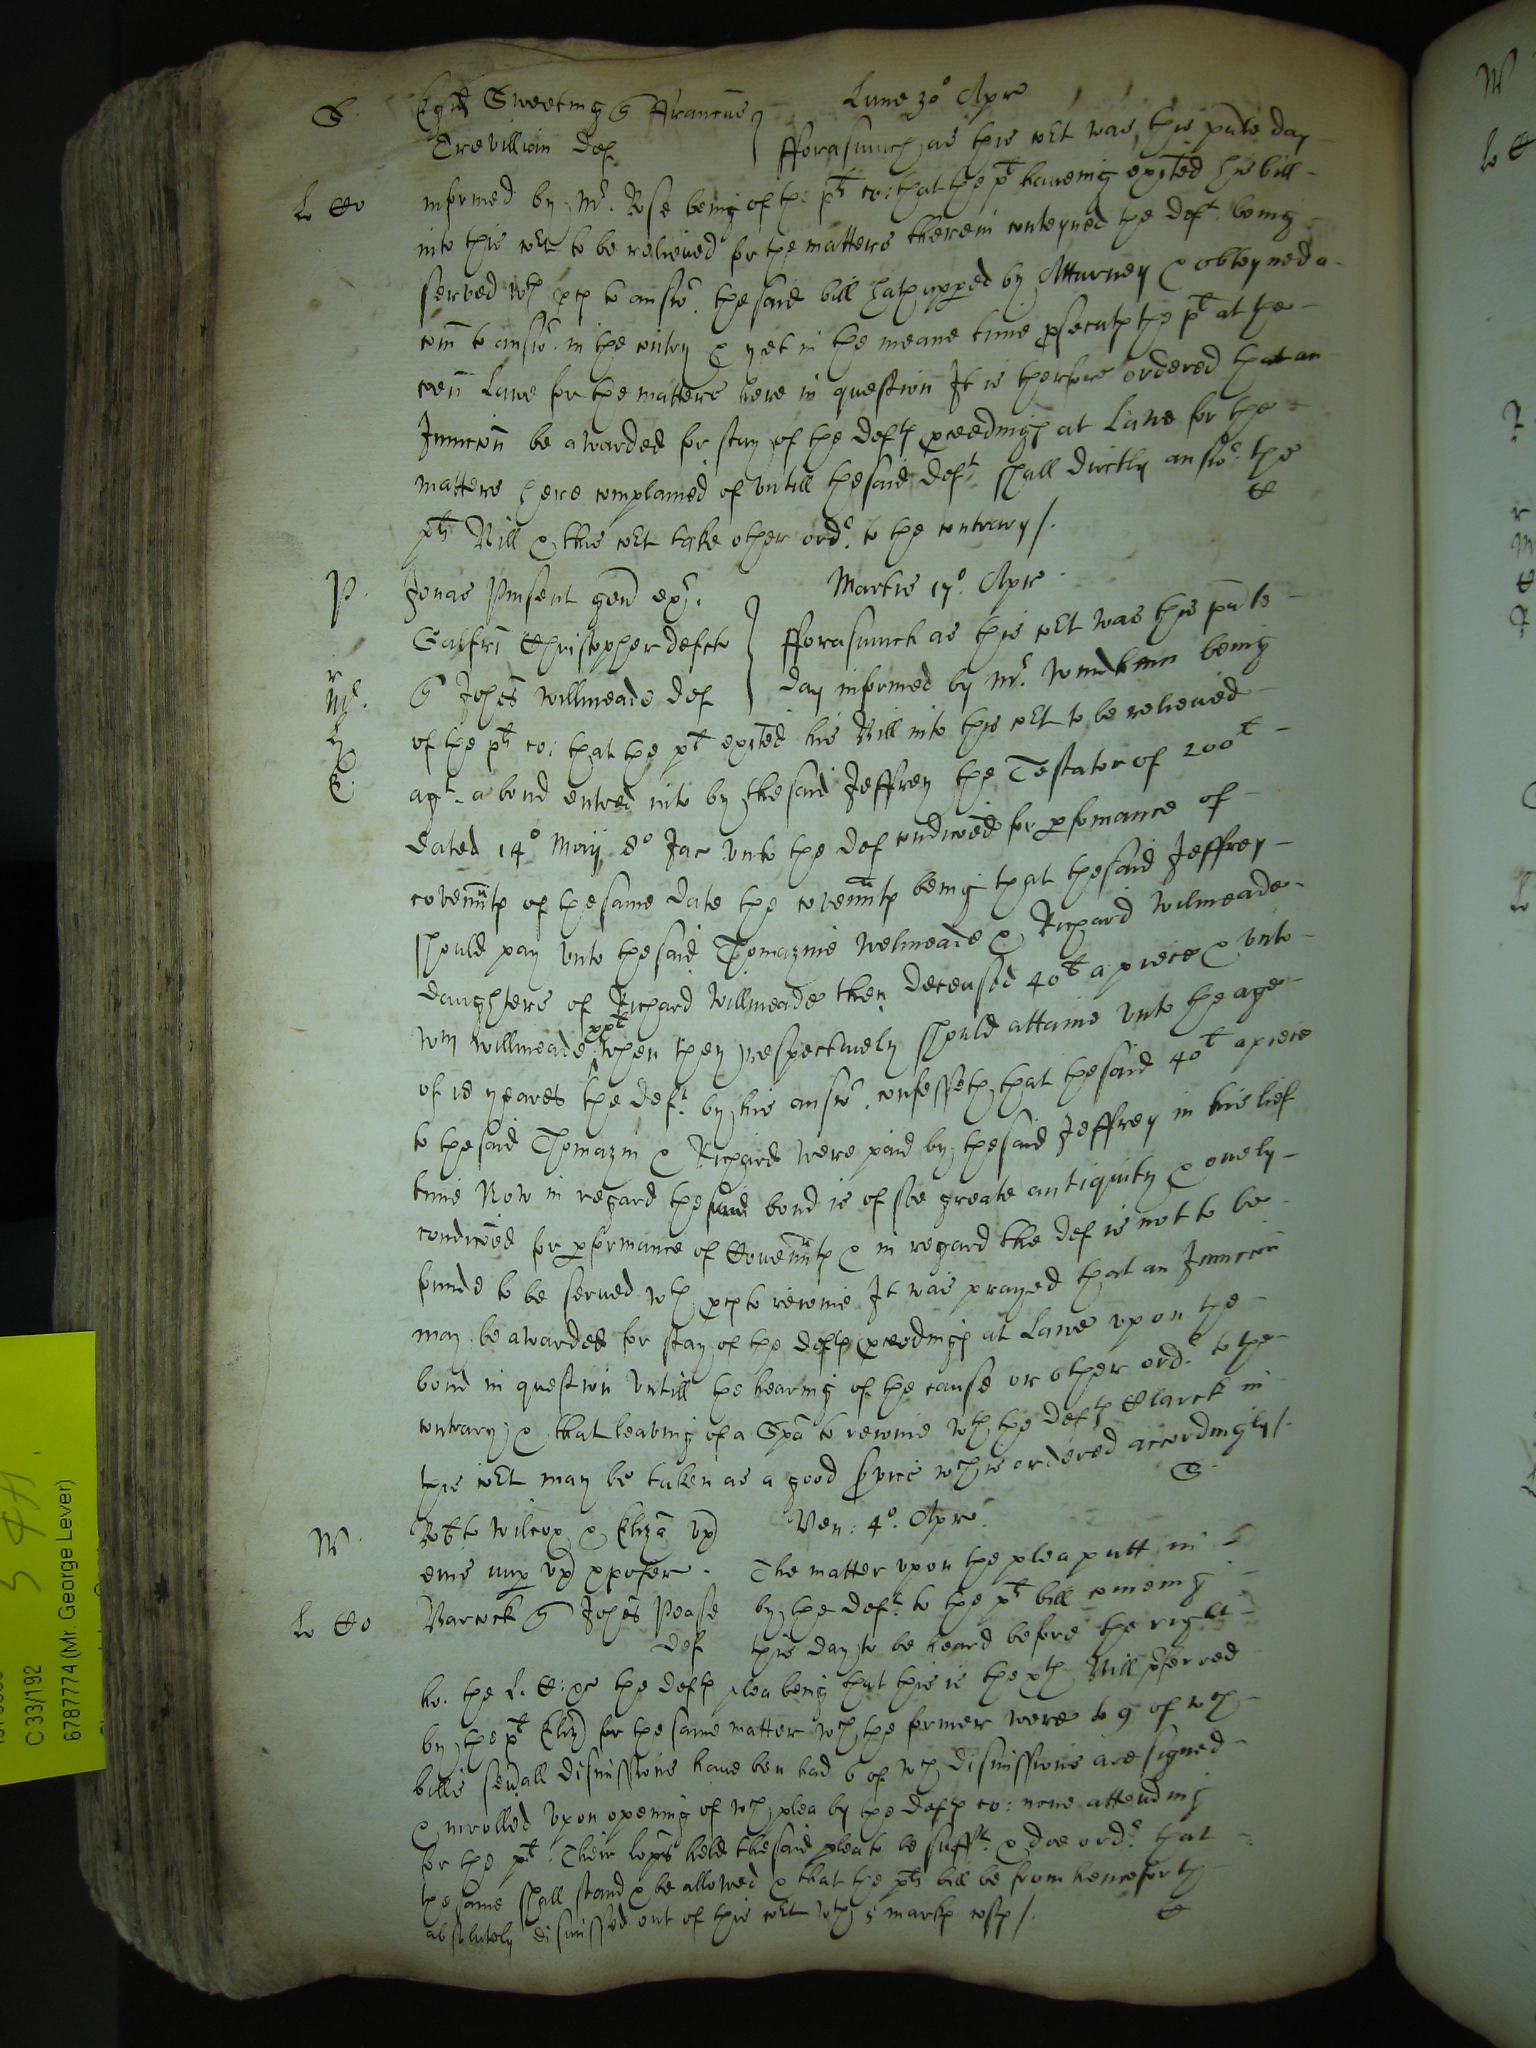 S. Egid Sweeting q Franciscus Lune 30° Apr
Trevillian def fforasmuch as this cort was this pnte day
Lo Co informed by Mr. Rose being of the plts co: that the plt haveing exited his bill
into this cort to be relieved for the matters therein conteyned the deft. being
served wth pces to answ. the said bill hath appeared by Atturney & obteyned a
com to answ. in the contry & yet in the meane time psecuts the plt at the
coen Lawe for the matters here in question It is therfore ordered that an
Inunccon be awarded for stay of the defts pceedings at Lawe for the
matters here complained of vntill the said deft. shall directly answ. the
plts Bill & this cort take other ordr. to the contrary /.
P. Jonas Pinsent gen exr. Martis 17°. Apr
Galfri Christopher defcto fforasmuch as this cort was this pnte
Mr. q Johes Willmeade def day informed by Mr. being
of the plts co: that the plt exited his Bill into this cort to be relieved
agt. a bond entred into by the said Jeffrey the Testator of 200l
dated 14° Maij 8° Jac vnto the def condicoed for pformance of
covennts of the same date the covennts being that the said Jeffrey
should pay vnto the said Thomazine Welmeade & Richard Wilmeade
daughters of Richard Willmeade then deceased 40l a piece & vnto
Wm Willmeade xxl when they respectively should attaine vnto the age
of 18 yeares the deft. by his answ. confesseth that the said 40l a piece
to the said Thomazin & Richard were paid by the said Jeffrey in his lief
time Now in regard the said bond is of soe greate antiquity & onely
condicoed for pformance of Covennts & in regard the def is not to be
founde to be served wth pces to reioine It was prayed that an Inunccon
may be awarded for stay of the defts pceedings at Lawe vpon the
bond in question vntill the hearing of the cause or other ordr. to the
contrary & that leaving of a Spa to reioine wth the defts Clarck in
this cort may be taken as a good service wch is ordered accordingly /.
W. Robto Wilcox & Eliza vx Ven: 4°. Apr.
eius nup vx The matter vpon the plea putt in
Barcock q Johes Pease by the deft. to the plts bill comeing
Lo Co def this day to be heard before the right
ho. the L. C: &c the defts plea being that this is the xth Bill pferred
by the plt Eliz for the same matter wch the former were to 9 of wch
bills severall dismissions have ben had 6 of wch dismissions are signed
& inrolled Vpon opening of wch plea by the defts co: none attending
for the plt. Their lopps held the said plea to be sufft. & doe ordr. that
the same shall stand & be allowed & that the plts bill be from henceforth
absolutely dismissed out of this cort wth 5 marks costs /.
C 33/192
6787774 (Mr. George Lever)